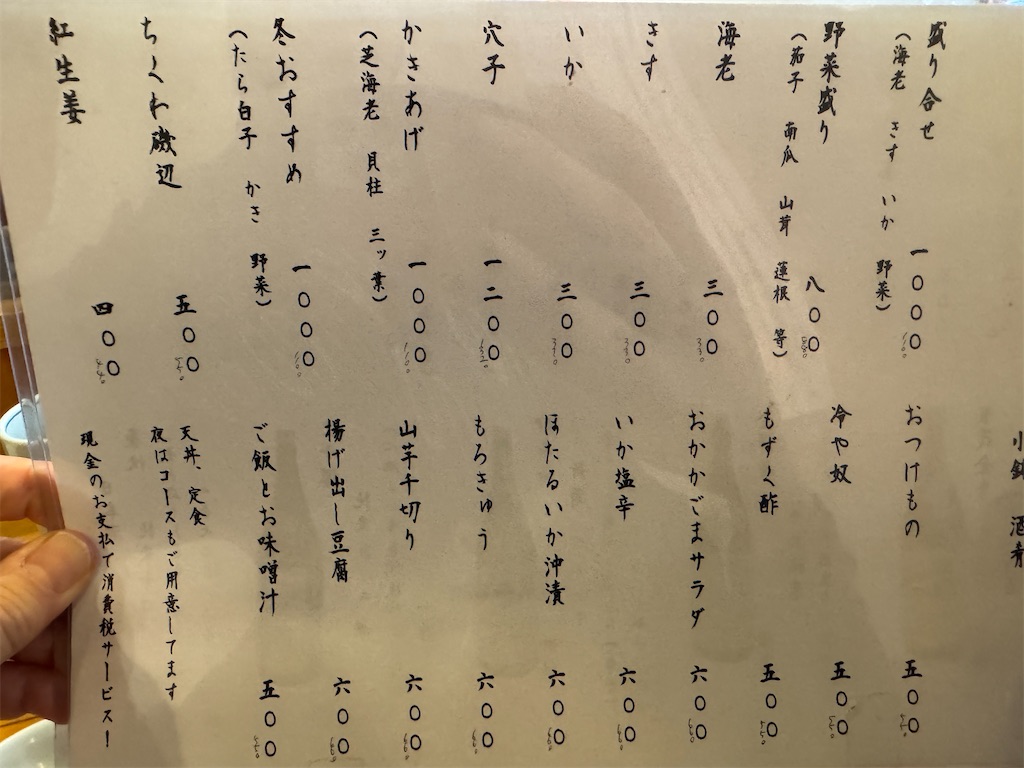 盛り合せ 一〇〇〇
(海老 きす いか 野菜) 1100
野菜盛り 八〇〇
(茄子 南瓜 山茸 蓮根 等) 880
海老 三〇〇 330
きす 三〇〇 330
いか 三〇〇 330
穴子 一二〇〇 1320
かきあげ 一〇〇〇
(芝海老 貝柱 三ッ葉) 1100
冬おすすめ 一〇〇〇 1100
(たら白子 かき 野菜)
ちくわ磯辺 五〇〇 550
紅生姜 四〇〇 440
小鉢 酒肴
おつけもの 五〇〇 550
冷や奴 五〇〇 550
もずく酢 五〇〇 550
おかかごまサラダ 六〇〇 660
いか塩辛 六〇〇 660
ほたるいか沖漬 六〇〇 660
もろきゅう 六〇〇 660
山芋千切り 六〇〇 660
揚げ出し豆腐 六〇〇 660
ご飯とお味噌汁 五〇〇 550
天丼、定食
夜はコースもご用意してます
現金のお支払で消費税サービス!